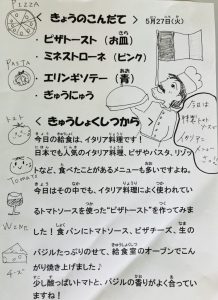 PIZZA
< きょうのこんだて >
5月27日(火)
・ピザトースト(お皿)
・ミネストローネ(ピンク)
・エリンギソテー(青)
・ぎゅうにゅう
PASTA
< きゅうしょくしつから >
今日の給食は、イタリア料理です!
日本でも人気のイタリア料理、ピザやパスタ、リゾッ
トなど、食べたことがあるメニューも多いですよね。
今日はその中でも、イタリア料理によく使われてい
るトマトソースを使った“ピザトースト”を作ってみま
した!食パンにトマトソース、ピザチーズ、生の
バジルたっぷりのせて、給食室のオーブンでこん
がり焼き上げました♪
少し酸っぱいトマトと、バジルの香りがよく合ってい
ますね!
トマト
Tomato
チーズ
今日は
トマト